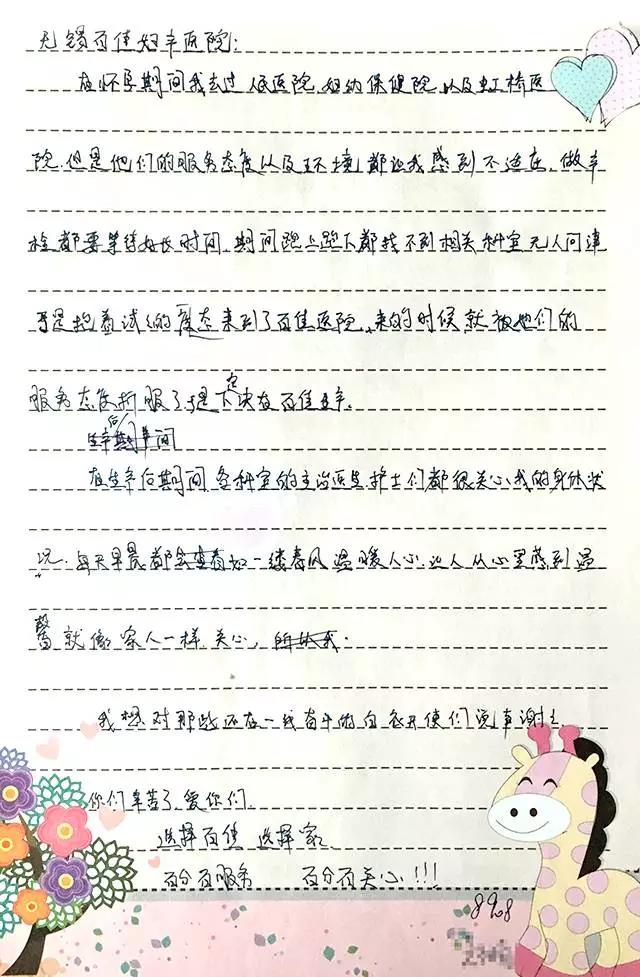 无锡百佳妇产医院:
在怀孕期间我去过人民医院,妇幼保健院,以及虹桥医
院.但是他们的服务态度以及环境都让我感到不适在,做产
检都要等待好长时间,期间跑上跑下都找不到相关科室无人问津
于是抱着试试的态度来到了百佳医院,来的时候就被他们的
服务态度折服了于是下定决在百佳生产.
在生产后期间,各科室的主治医生护士们都很关心我的身体状
况.每天早晨都会查看如一缕春风温暖人心让人从心里感到温
馨就像家人一样关心,
我想对那些还在一线奋斗的白衣天使们说声谢谢
你们辛苦了,爱你们.
选择百佳 选择家
百分百服务 百分百关心!!!
8908